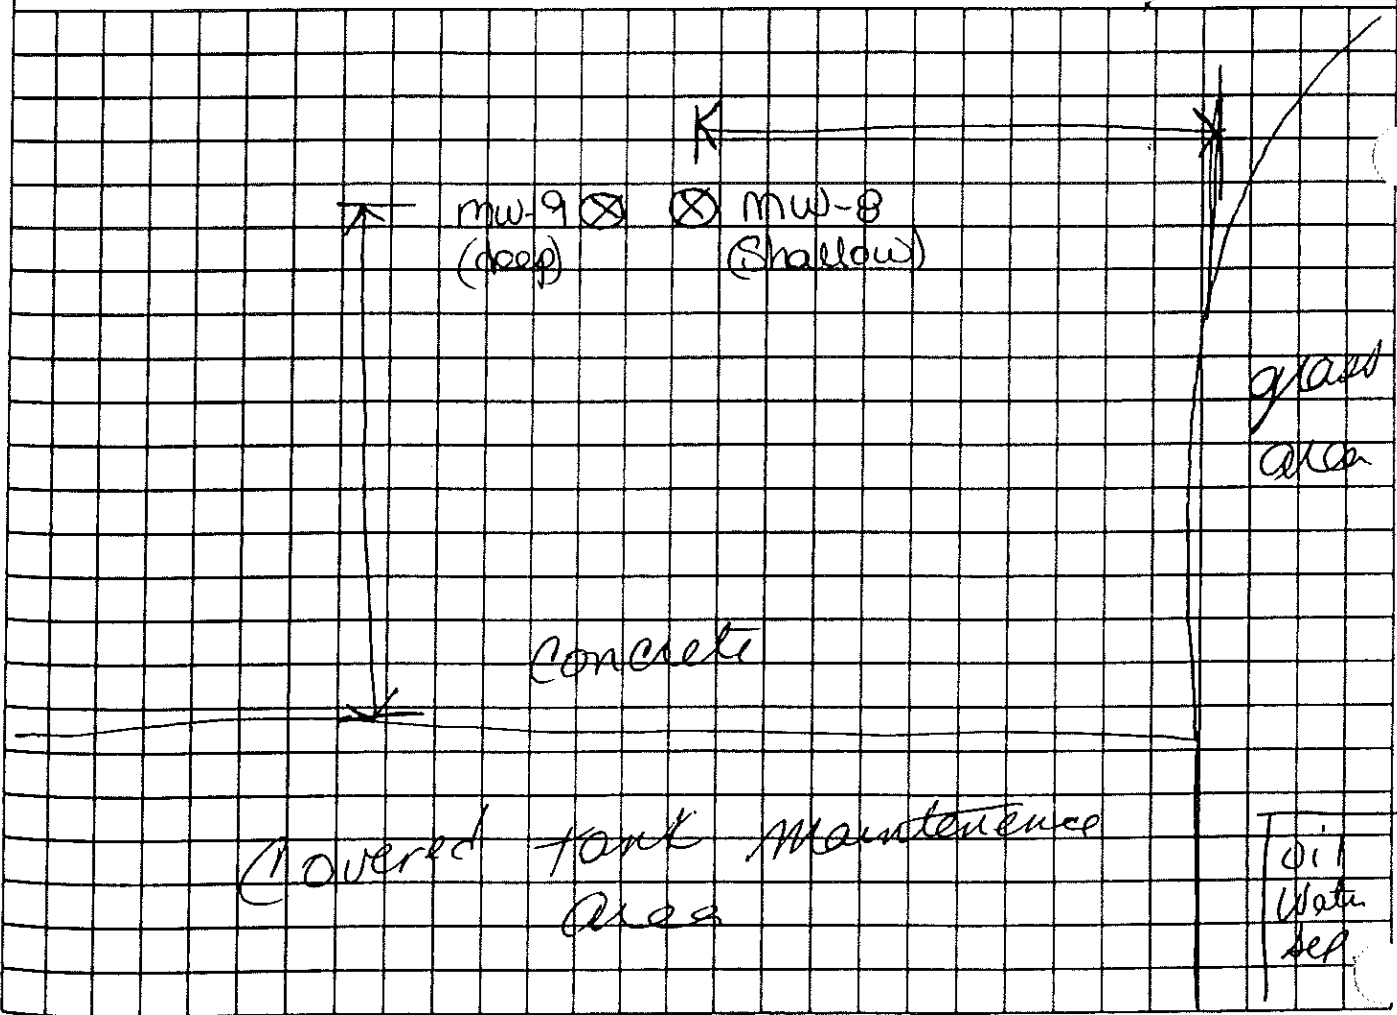 mw-9
(deep)
MW-8
(Shallow)
grass
area
Concrete
Covered tank Maintenence
area
oil
Water
sep